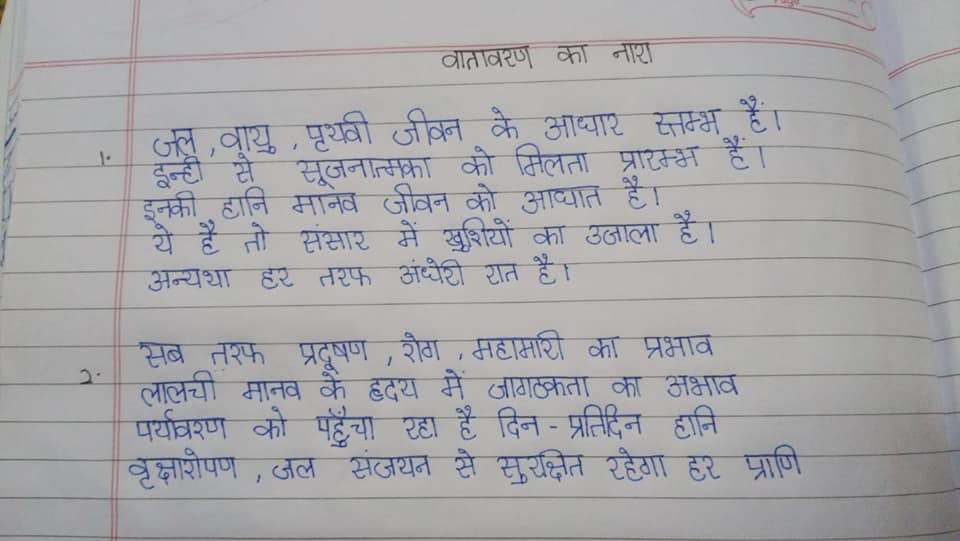 वातावरण का नारा
1. जल, वायु, पृथवी जीवन के आधार स्तम्भ हैं।
इन्ही से सूजनात्मका को मिलता प्रारम्भ हैं।
इनकी हानि मानव जीवन को आघात है।
ये है तो संसार में खुशियों का उजाला है।
अन्यथा हर तरफ अंधेरी रात है।
2. सब तरफ प्रदूषण, रोग, महामारी का प्रभाव
लालची मानव के हृदय में जागरुकता का अभाव
पर्यावरण को पहुँचा रहा है दिन-प्रतिदिन हानि
वृक्षारोपण, जल संजयन से सुरक्षित रहेगा हर प्राणि